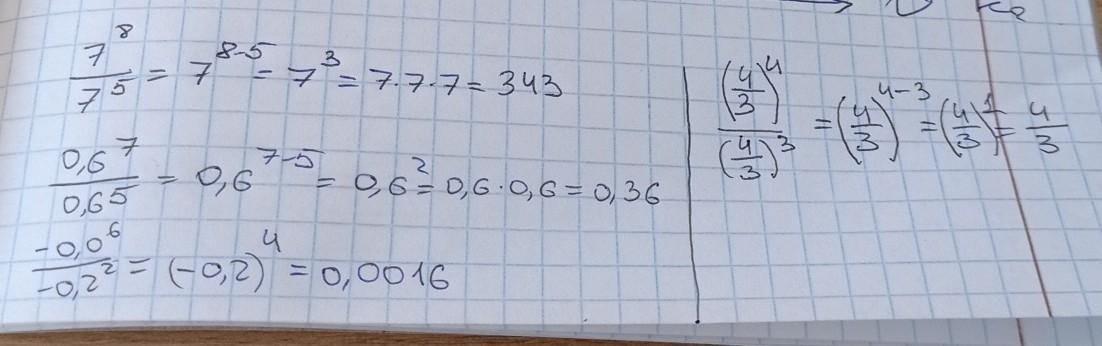 7^8/7^5 = 7^(8-5) = 7^3 = 7·7·7 = 343
0,6^7/0,6^5 = 0,6^(7-5) = 0,6^2 = 0,6·0,6 = 0,36
-0,0^6/-0,2^2 = (-0,2)^4 = 0,0016
(4/3)^4/(4/3)^3 = (4/3)^(4-3) = (4/3)^1 = 4/3